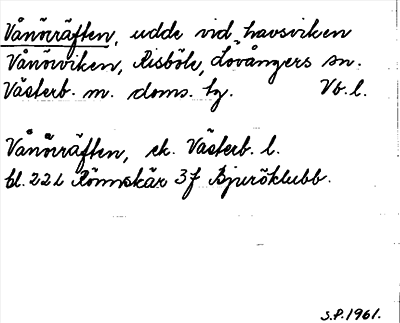 Vånöräften, udde vid havsviken
Vånöviken, Risböle, Lövångers sn.
Västerb. m. doms. hg. Vb. l.
Vånöräften, ek. Västerb. l.
bl. 22 L Rönnskär 3 f Bjuröklubb.
S.P. 1961.